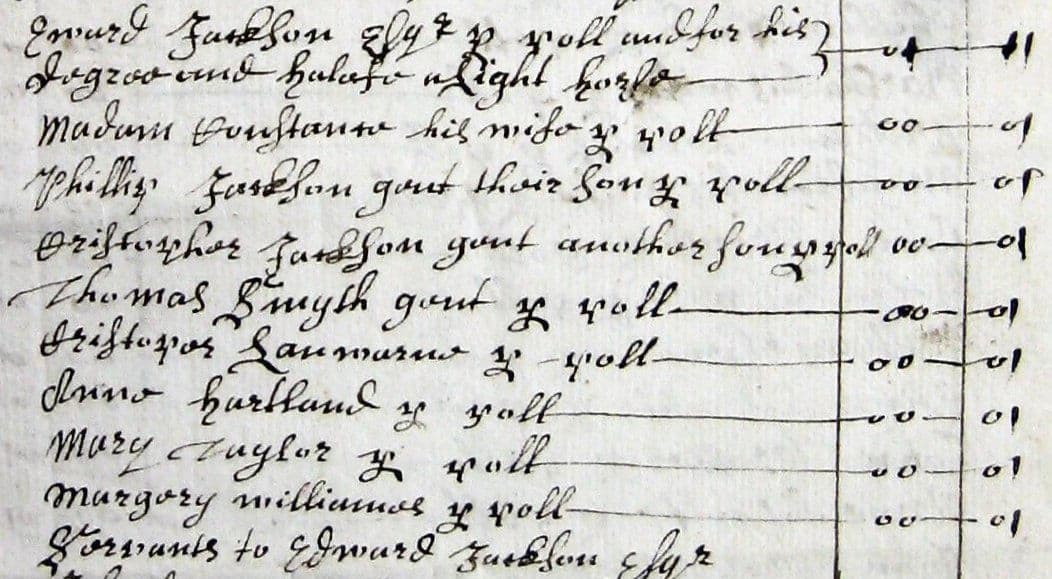 Edward Jackson Esqr p poll and for his
degree and halafe a Light horse 01 11
Madam Constance his wife p poll 00 01
Phillip Jackson gent their son p poll 00 01
Cristopher Jackson gent another son p poll 00 01
Thomas Smyth gent p poll 00 01
Cristopor Lanwarne p poll 00 01
Anne Hartland p poll 00 01
Mary Taylor p poll 00 01
Margery williames p poll 00 01
Servants to Edward Jackson Esqr